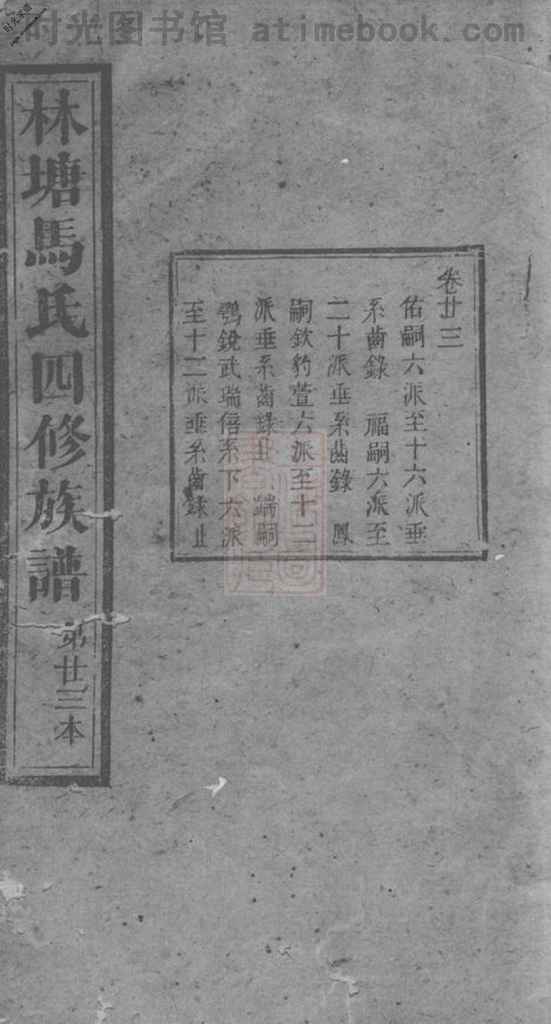 时光图书馆 atimebook.com
林塘馬氏四修族譜 第廿三本
卷廿三
佑嗣六派至十六派垂
系齒錄 福嗣六派至
二十派垂系齒錄 鳳
嗣欽豹萱六派至十二
派垂系齒錄止 端嗣
鶚銳武瑞信系下六派
至十二派垂系齒錄止